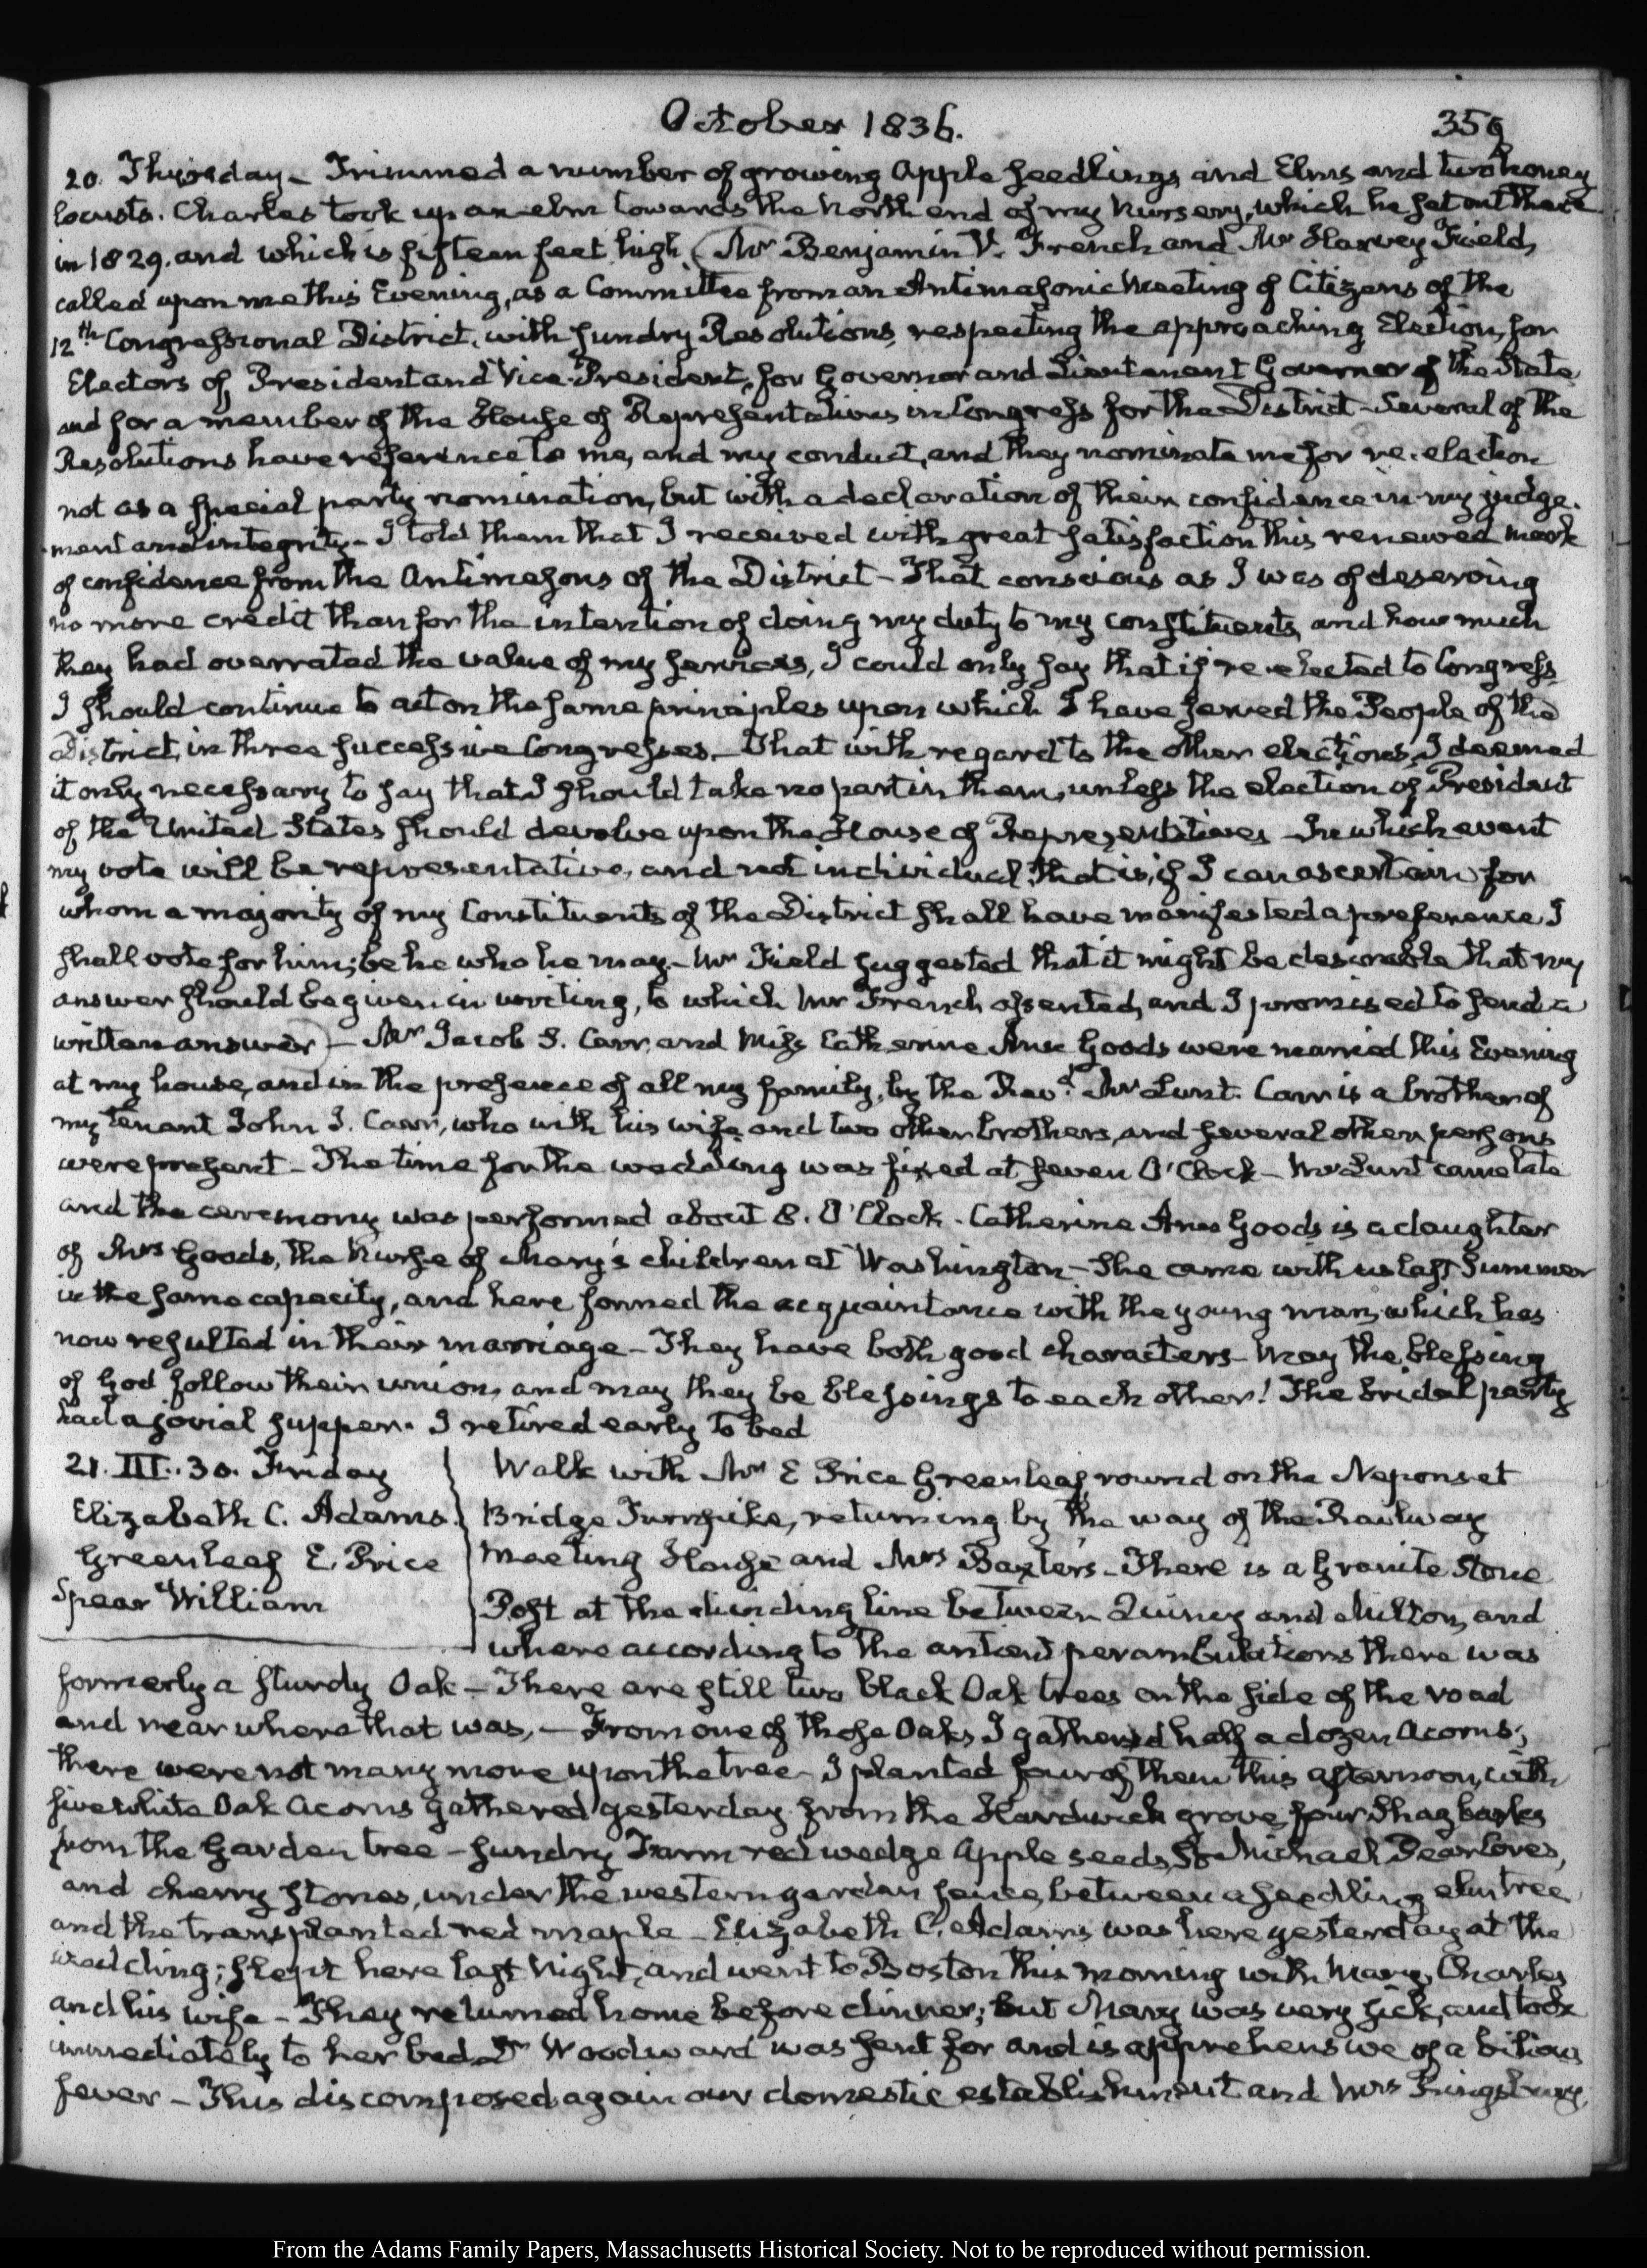 October 1836.
359
20. Thursday – Trimmed a number of growing Apple seedlings and Elms and two honey
locusts. Charles took up an elm towards the North end of my Nursery, which he set out there
in 1829. and which is fifteen feet high (Mr Benjamin V. French and Mr Harvey Field,
called upon me this Evening, as a Committee from an Antimasonic Meeting of Citizens of the
12th Congressional District, with sundry Resolutions, respecting the approaching Election, for
Electors of President and Vice-President, for Governor and Lieutenant Governor of the State
and for a member of the House of Representatives in Congress for the District – Several of the
Resolutions have reference to me, and my conduct, and they nominate me for re-election
not as a special party nomination, but with a declaration of their confidence in my judge-
ment and integrity – I told them that I received with great satisfaction this renewed mark
of confidence from the Antimasons of the District – That conscious as I was of deserving
no more credit than for the intention of doing my duty to my constituents, and how much
they had overrated the value of my services, I could only say that if re-elected to Congress
I should continue to act on the same principles upon which I have served the People of the
District, in three successive Congresses – That with regard to the other elections, I deemed
it only necessary to say that I should take no part in them, unless the election of President
of the United States should devolve upon the House of Representatives – In which event
my vote will be representative, and not individual; that is, if I can ascertain for
whom a majority of my Constituents of the District shall have manifested a preference I
shall vote for him; be he who he may – Mr Field suggested that it might be desirable that my
answer should be given in writing, to which Mr French assented, and I promised to send a
written answer) – Mr Jacob S. Carr, and Miss Catherine Ann Goods were married this Evening
at my house, and in the presence of all my family, by the Revd. Mr Lunt. Carr is a brother of
my tenant John J. Carr, who with his wife and two other brothers, and several other persons
were present – The time for the wedding was fixed at seven O'Clock – Mr Lunt came late
and the ceremony was performed about 8. O'Clock. Catherine Ann Goods is a daughter
of Mrs Goods, the Nurse of Mary's children at Washington – She came with us last Summer
in the same capacity, and here formed the acquaintance with the young man, which has
now resulted in their marriage – They have both good characters – May the blessing
of God follow their union, and may they be blessings to each other! The bridal party
had a jovial supper. I retired early to bed
21. III:30. Friday
Elizabeth C. Adams.
Greenleaf E. Price
Spear William
Walk with Mr E Price Greenleaf, round on the Neponset
Bridge Turnpike, returning by the way of the Railway
Meeting House and Mrs Baxter's – There is a Granite Stone
Post at the dividing line between Quincy and Milton, and
where according to the antient perambulations there was
formerly a sturdy Oak – There are still two black Oak trees on the side of the road
and near where that was, – From one of those Oaks I gathered half a dozen acorns;
there were not many more upon the tree – I planted four of them this afternoon, with
five white Oak Acorns gathered yesterday from the Hardwick grove, four Shagbarks
from the Garden tree – sundry Farm red wedge Apple seeds, St Michael Pear Cores,
and cherry stones, under the western garden fence, between a seedling elm tree
and the transplanted red maple – Elizabeth C. Adams was here yesterday at the
wedding; slept here last Night, and went to Boston this morning with Mary, Charles
and his wife – They returned home before dinner; but Mary was very sick, and took
immediately to her bed. Dr Woodward was sent for and is apprehensive of a bilious
fever – This discomposed again our domestic establishment and Mrs Kingsbury,
From the Adams Family Papers, Massachusetts Historical Society. Not to be reproduced without permission.